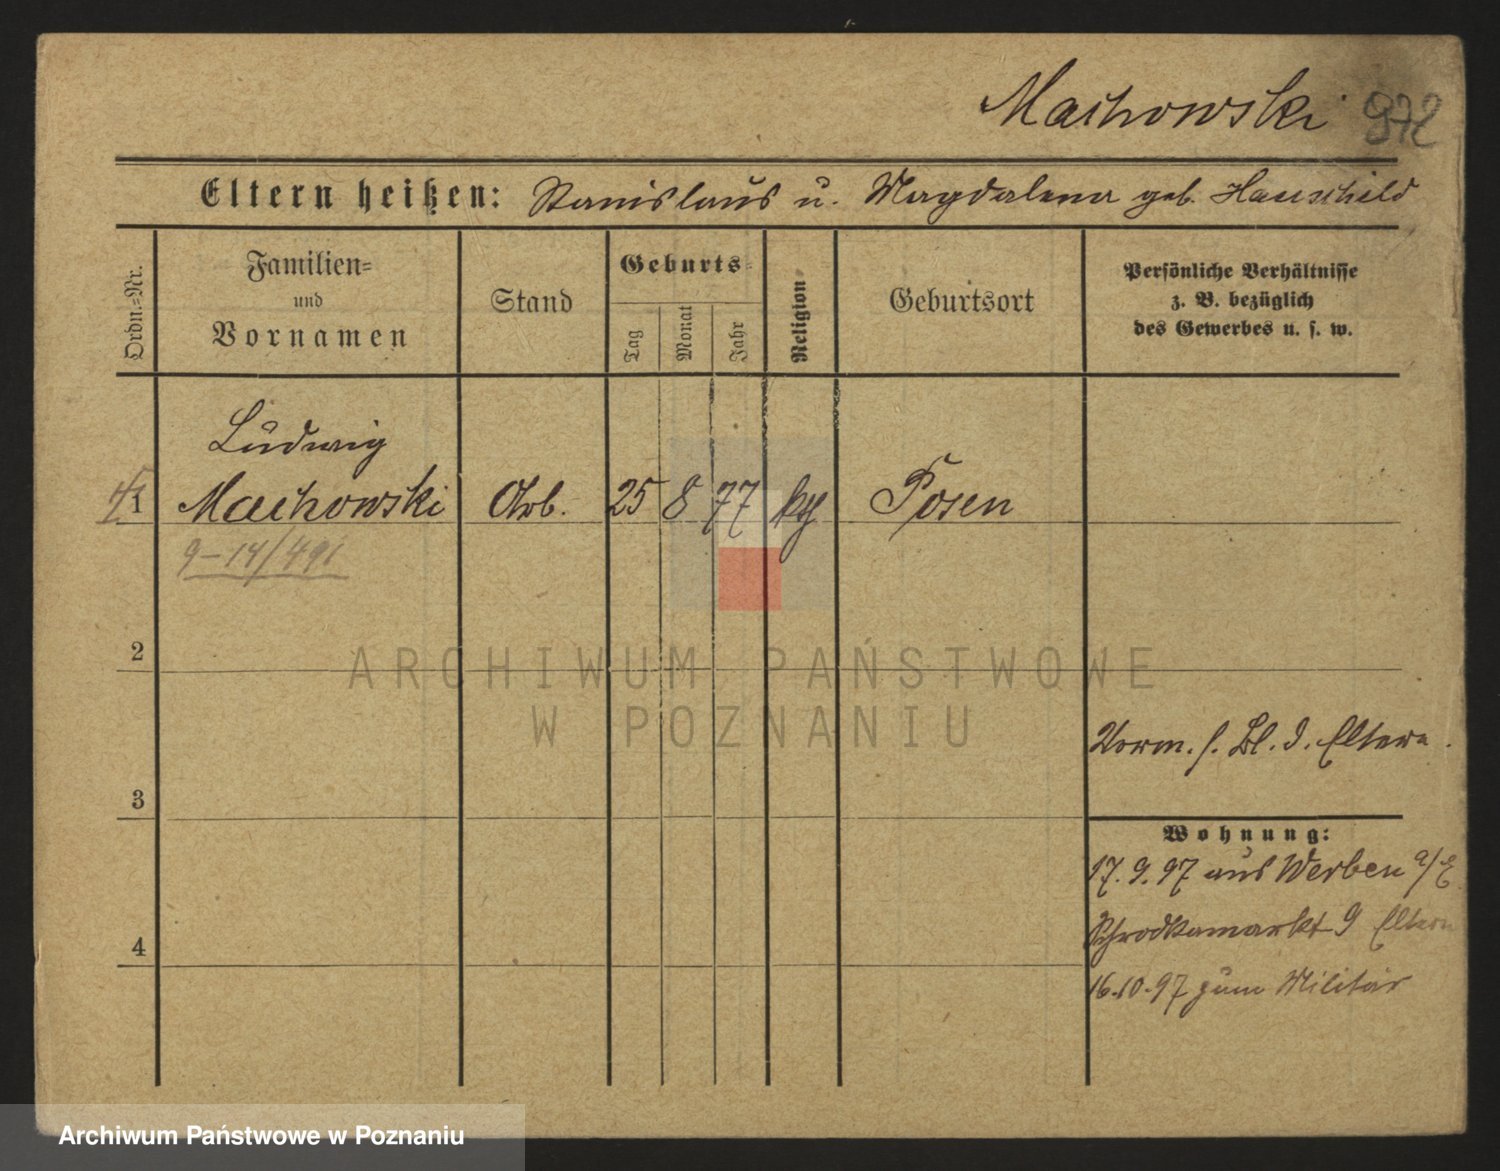 Machowski 972
Eltern heißen: Stanislaus u. Magdalena geb. Hauschild
Ordn.=Nr.
Familien=
und
Vornamen
Stand
Geburts=
Tag
Monat
Jahr
Religion
Geburtsort
Persönliche Verhältnisse
z. B. bezüglich
des Gewerbes u. s. w.
Ludwig
1 Machowski Arb. 25 8 77 kth Posen
9-14/491
2
ARCHIWUM PAŃSTWOWE
W POZNANIU
Vorm. s. Bl. d. Eltern.
3
Wohnung:
17.9.97 aus Werben a/E
Schrodkamarkt 9 Eltern
4
16.10.97 zum Militär
Archiwum Państwowe w Poznaniu